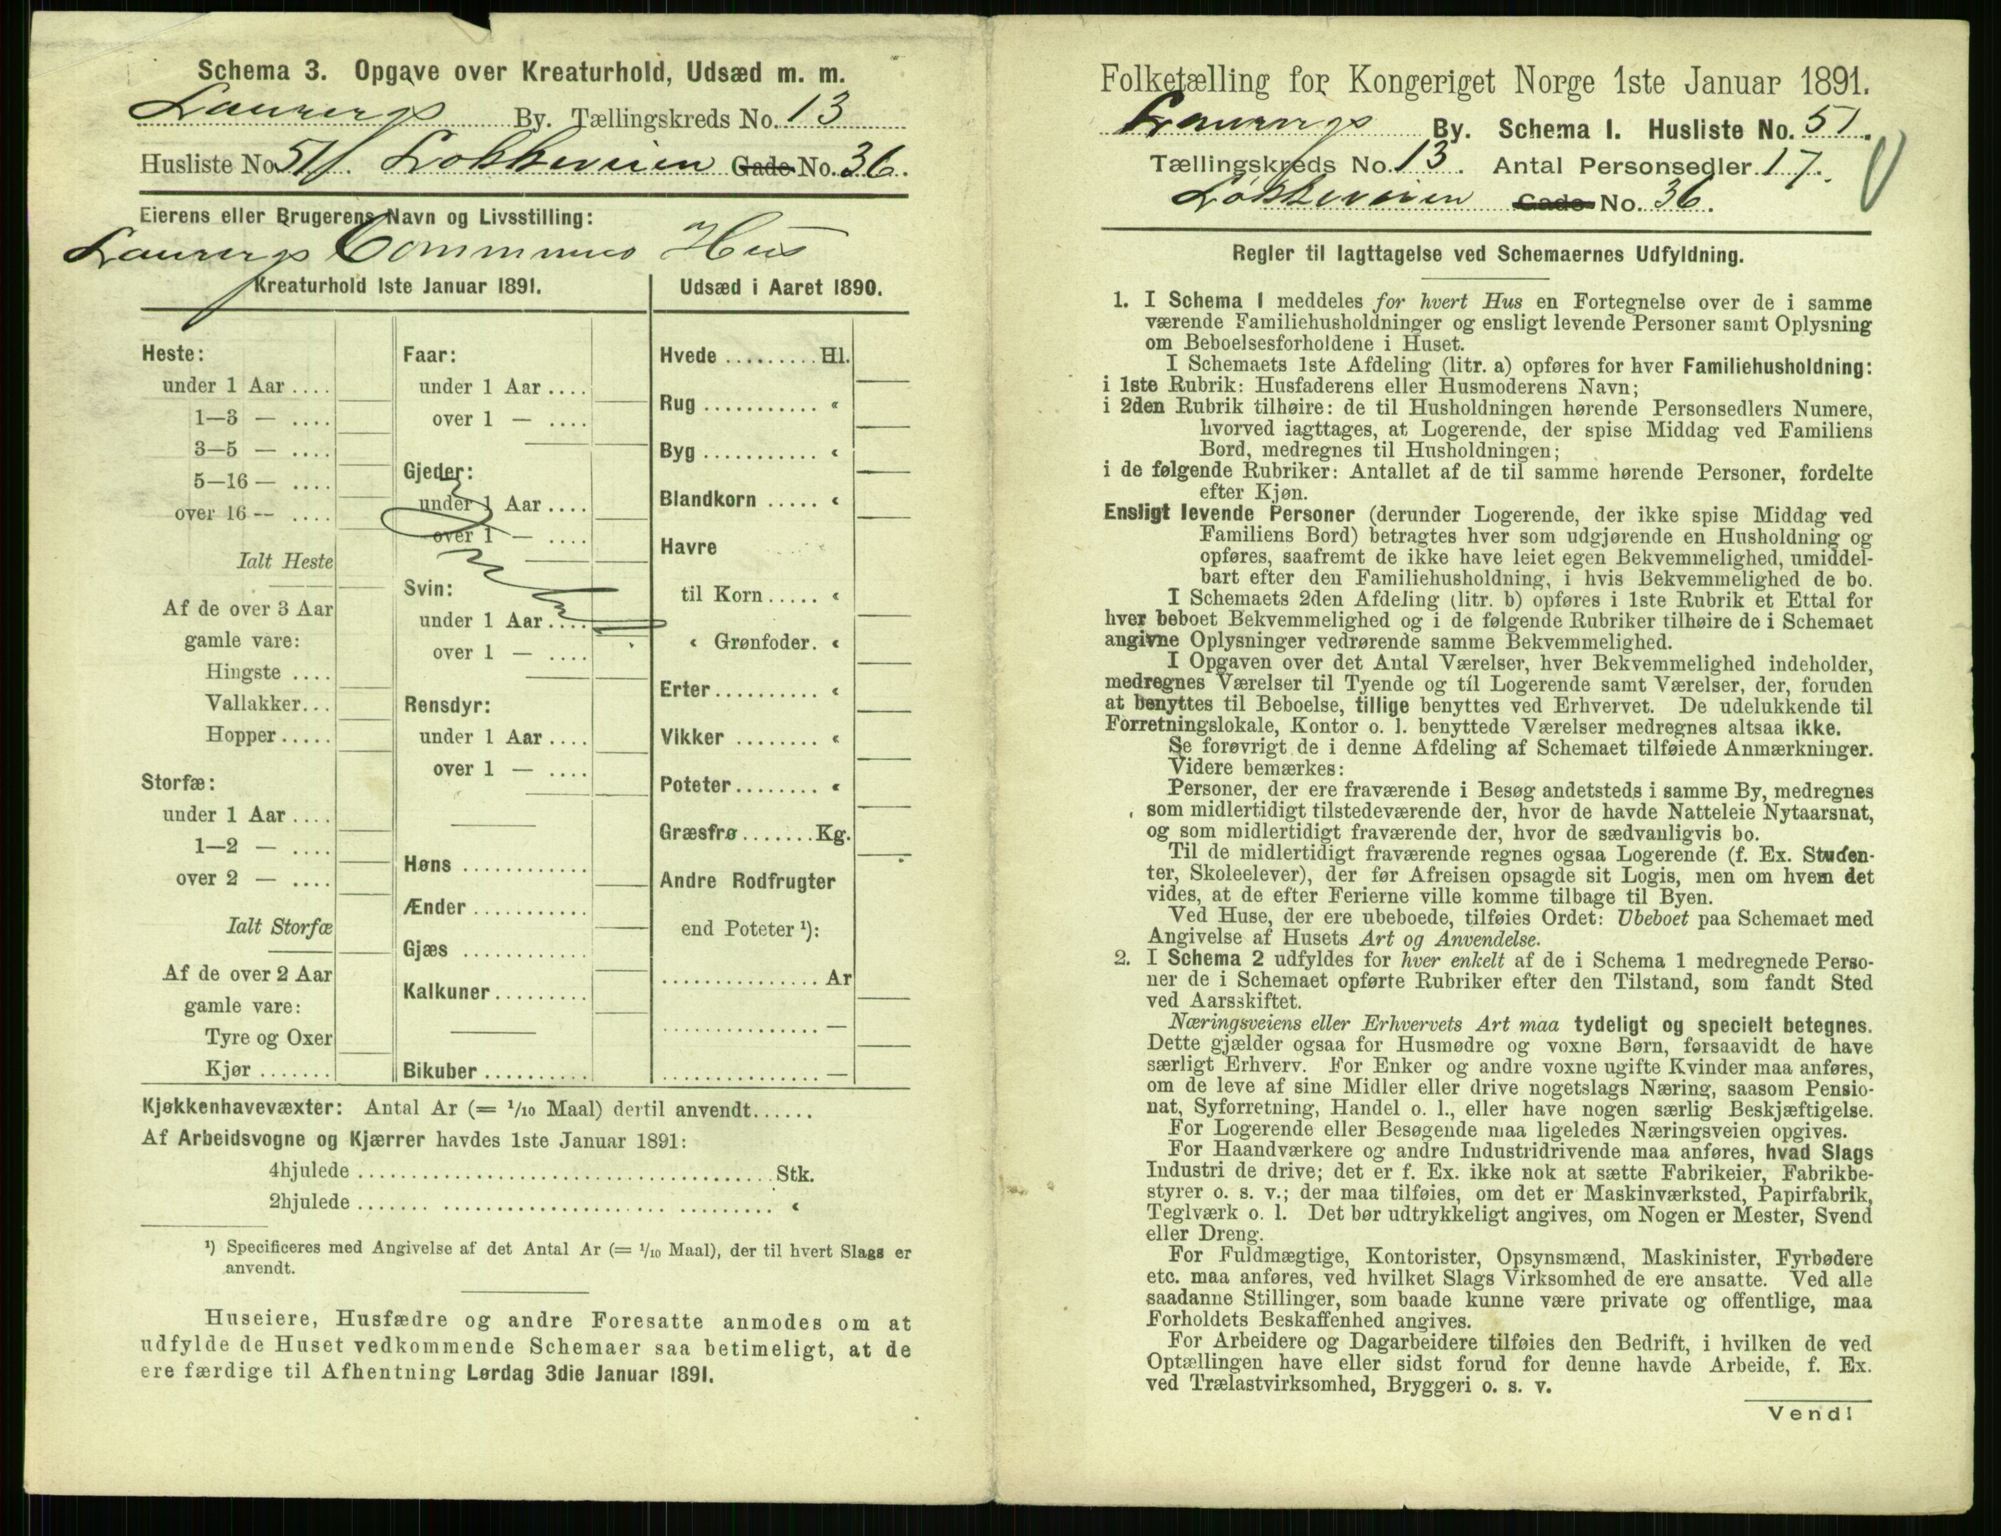 Schema 3. Opgave over Kreaturhold, Udsæd m. m.
Laurvigs By. Tællingskreds No. 13
Husliste No. 51. Løkkeveien Gade No. 36.
Eierens eller Brugerens Navn og Livsstilling:
Laurvigs Communes Hus
Kreaturhold 1ste Januar 1891.
Heste:
under 1 Aar ....
1—3 — ....
3—5 — ....
5—16 — ....
over 16 — ....
Ialt Heste
Af de over 3 Aar
gamle vare:
Hingste ....
Vallakker...
Hopper.....
Storfæ:
under 1 Aar ....
1—2 — ....
over 2 — ....
Ialt Storfæ
Af de over 2 Aar
gamle vare:
Tyre og Oxer
Kjør .......
Faar:
under 1 Aar ....
over 1 — ....
Gjeder:
under 1 Aar ....
over 1 — ....
Svin:
under 1 Aar ....
over 1 — ....
Rensdyr:
under 1 Aar ....
over 1 — ....
Høns ............
Ænder ...........
Gjæs ............
Kalkuner.........
Bikuber ..........
Udsæd i Aaret 1890.
Hvede ......... Hl.
Rug ........... «
Byg ........... «
Blandkorn ..... «
Havre
til Korn ..... «
« Grønfoder. «
Erter.......... «
Vikker ........ «
Poteter........ «
Græsfrø ....... Kg.
Andre Rodfrugter
end Poteter ¹):
............... Ar
............... —
............... —
Kjøkkenhavevæxter: Antal Ar (= 1/10 Maal) dertil anvendt......
Af Arbeidsvogne og Kjærrer havdes 1ste Januar 1891:
4hjulede ........................................ Stk.
2hjulede ....... ...................... ......... «
¹) Specificeres med Angivelse af det Antal Ar (= 1/10 Maal), der til hvert Slags er
anvendt.
Huseiere, Husfædre og andre Foresatte anmodes om at
udfylde de Huset vedkommende Schemaer saa betimeligt, at de
ere færdige til Afhentning Lørdag 3die Januar 1891.
Folketælling for Kongeriget Norge 1ste Januar 1891.
Laurvigs By. Schema I. Husliste No. 51.
Tællingskreds No. 13. Antal Personsedler 17.
Løkkeveien Gade No. 36.
Regler til Iagttagelse ved Schemaernes Udfyldning.
1. I Schema I meddeles for hvert Hus en Fortegnelse over de i samme
værende Familiehusholdninger og ensligt levende Personer samt Oplysning
om Beboelsesforholdene i Huset.
I Schemaets 1ste Afdeling (litr. a) opføres for hver Familiehusholdning:
i 1ste Rubrik: Husfaderens eller Husmoderens Navn;
i 2den Rubrik tilhøire: de til Husholdningen hørende Personsedlers Numere,
hvorved iagttages, at Logerende, der spise Middag ved Familiens
Bord, medregnes til Husholdningen;
i de følgende Rubriker: Antallet af de til samme hørende Personer, fordelte
efter Kjøn.
Ensligt levende Personer (derunder Logerende, der ikke spise Middag ved
Familiens Bord) betragtes hver som udgjørende en Husholdning og
opføres, saafremt de ikke have leiet egen Bekvemmelighed, umiddel-
bart efter den Familiehusholdning, i hvis Bekvemmelighed de bo.
I Schemaets 2den Afdeling (litr. b) opføres i 1ste Rubrik et Ettal for
hver beboet Bekvemmelighed og i de følgende Rubriker tilhøire de i Schemaet
angivne Oplysninger vedrørende samme Bekvemmelighed.
I Opgaven over det Antal Værelser, hver Bekvemmelighed indeholder,
medregnes Værelser til Tyende og til Logerende samt Værelser, der, foruden
at benyttes til Beboelse, tillige benyttes ved Erhvervet. De udelukkende til
Forretningslokale, Kontor o. l. benyttede Værelser medregnes altsaa ikke.
Se forøvrigt de i denne Afdeling af Schemaet tilføiede Anmærkninger.
Videre bemærkes:
Personer, der ere fraværende i Besøg andetsteds i samme By, medregnes
som midlertidigt tilstedeværende der, hvor de havde Natteleie Nytaarsnat,
og som midlertidigt fraværende der, hvor de sædvanligvis bo.
Til de midlertidigt fraværende regnes ogsaa Logerende (f. Ex. Studen-
ter, Skoleelever), der før Afreisen opsagde sit Logis, men om hvem det
vides, at de efter Ferierne ville komme tilbage til Byen.
Ved Huse, der ere ubeboede, tilføies Ordet: Ubeboet paa Schemaet med
Angivelse af Husets Art og Anvendelse.
2. I Schema 2 udfyldes for hver enkelt af de i Schema 1 medregnede Perso-
ner de i Schemaet opførte Rubriker efter den Tilstand, som fandt Sted
ved Aarsskiftet.
Næringsveiens eller Erhvervets Art maa tydeligt og specielt betegnes.
Dette gjælder ogsaa for Husmødre og voxne Børn, forsaavidt de have
særligt Erhverv. For Enker og andre voxne ugifte Kvinder maa anføres,
om de leve af sine Midler eller drive nogetslags Næring, saasom Pensio-
nat, Syforretning, Handel o. l., eller have nogen særlig Beskjæftigelse.
For Logerende eller Besøgende maa ligeledes Næringsveien opgives.
For Haandværkere og andre Industridrivende maa anføres, hvad Slags
Industri de drive; det er f. Ex. ikke nok at sætte Fabrikeier, Fabrikbe-
styrer o. s. v.; der maa tilføies, om det er Maskinværksted, Papirfabrik,
Teglværk o. l. Det bør udtrykkeligt angives, om Nogen er Mester, Svend
eller Dreng.
For Fuldmægtige, Kontorister, Opsynsmænd, Maskinister, Fyrbødere
etc. maa anføres, ved hvilket Slags Virksomhed de ere ansatte. Ved alle
saadanne Stillinger, som baade kunne være private og offentlige, maa
Forholdets Beskaffenhed angives.
For Arbeidere og Dagarbeidere tilføies den Bedrift, i hvilken de ved
Optællingen have eller sidst forud for denne havde Arbeide, f. Ex.
ved Trælastvirksomhed, Bryggeri o. s. v.
Vend!